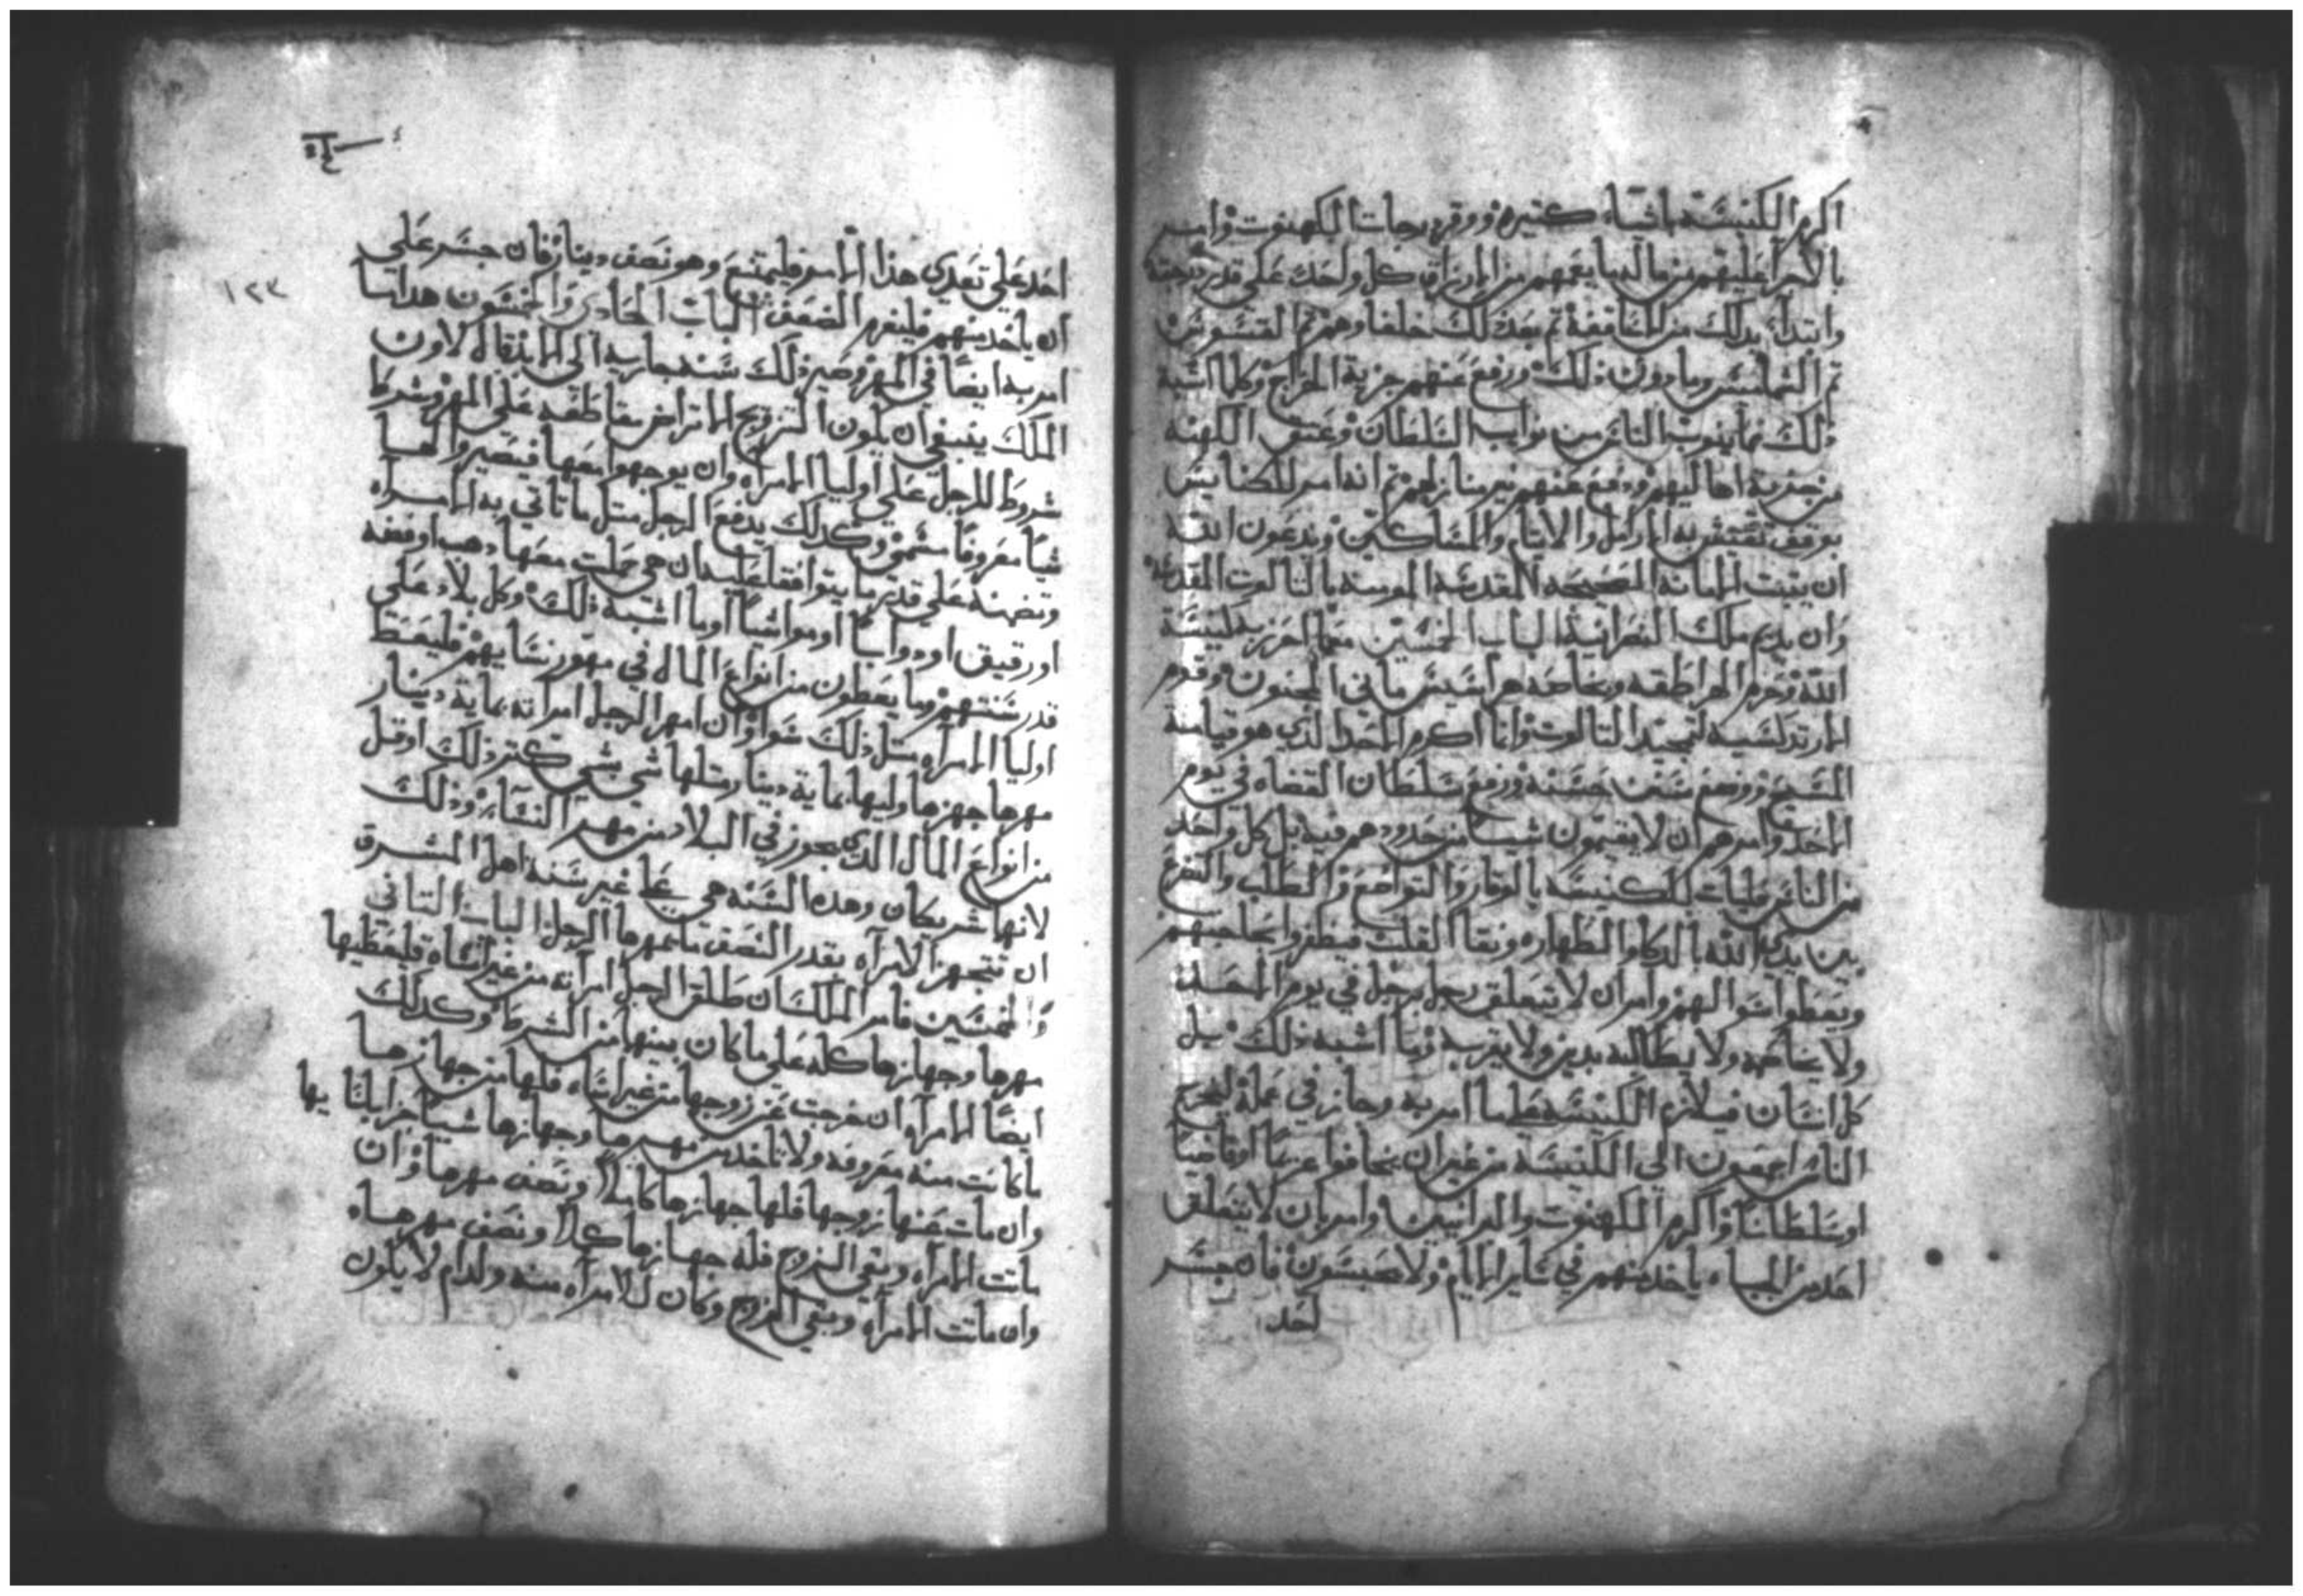 اكرم الكنيسه باشياء كتيره ووقر درجات الكهنوت وامر
بالاجرا عليهم من مال الدنيا يعمهم من الارزاق كل واحد علي قدر درجته
وابتدا بذلك من الاساقفة تم بعد ذلك خلفاوهم تم القسوس
تم الشمامسه وما دون ذلك ورفع عنهم جزية الخراج وكلما اشبه
ذلك مما ينوب الناس من نواب السلطان وعتق الكهنه
من جزية اهاليهم ودفع عنهم غير منازلهم تم انه امر للكنايس
توقيف تقتيتوبه الارامل والايتام والمساكين ويدعون الله
ان يتبت الامانه الصحيحه المقدسه المومنه بالتالوت المقدس
وان يديم ملك النصرانيه الباب الخمسين مما احرز به كنيسة
الله وحرم الهراطقه وبخاصه هراسيس ماني المجنون وقوم
المارتدكسيه لتمجيد التالوت وانا اكرم الاحد الذي هو قيامة
المسيح ووضع سنن حسنه ورفع سلطان القضاه في يوم
الاحد وامرهم ان لا يقيمون شيا من حدودهم فيه بل كل واحد
من الناس فليات للكنيسه بالوقار والتواضع والطلب والتضرع
بين يدي الله بالدكا والطهاره ونقا القلب فيظفروا بحاجتهم
ويعطوا سوالهم وامر ان لا يتعلق رجل برجل في يوم الاحد
ولا يخاصمه ولا يطالبه بدين ولا بغريه وما اشبه ذلك بل
كل انسان فيلازم الكنيسه عظيما امر به وجاز في عمله ليخرج
الناس اجمعون الي الكنيسه من غير ان يخافوا غريما او قاضيا
او سلطانا واكرم الكهنوت والديرانيين وامر بان لا يتعلق
احد من الجباه ياخذ منهم في ساير الايام ولا يحبسون فان جسر
احد
١٢٣
احد علي تعدي هذا الامر فليمتنع وهو نصف دينار فان جسر علي
ان ياخذ منهم فليغرم الضعف الباب الحادي والخمسون هذا ما
امر به ايضا في المهر وصير ذلك سنه جاريه الي الابد قال لاون
الملك ينبغي ان يكون التزويج الاتراض مقاطعه علي المهر وشرط
شروط للرجل علي اوليا الامراه وان يوجهوا معها فيصيروا لها
شيا معروفا مسمي وكذلك يدفع الرجل متل ما تاتي به الامراه
وتضمنه علي قدر ما يتوافقا عليه ان هي حملت معها دهب او فضه
او رقيق او دوابا او مواشيا او ما اشبه ذلك وكل بلاد علي
قدر سنتهم وما يعطون من انواع المال في مهور نسايهم فليعط
اوليا الامراه متل ذلك سوا وان امهر الرجل امراته بماية دينار
مهرها جهزها وليها بماية دينار متلها شي بشي كتر ذلك او قل
من انواع المال الذي يجوز في البلاد من مهر النسا وذلك
لانها شريكان وهذه السنه هي علي غير سنه اهل المشرق
ان تتجهز الامراه بقدر النصف مما يمهرها الرجل الباب التاني
والخمسين فامر الملك ان طلق الرجل امراته من غير اساه فليعطيها
مهرها وجهازها كله علي ما كان بينهما من الشرط وكذلك
ايضا الامراه ان خرجت عن زوجها من غير اساه فلها من جهازها
ما كانت منه معروفه ولا تاخذ من مهرها وجهازها شيا جزا بلسانها
وان مات عنها زوجها فلها جهازها كاملا ونصف مهرها وان
ماتت الامراه وبقي الزوج فله جهازها كملا ونصف مهرها
وان ماتت الامراه وبقي الزوج وكان للامراه منه ولد ام لا يكون